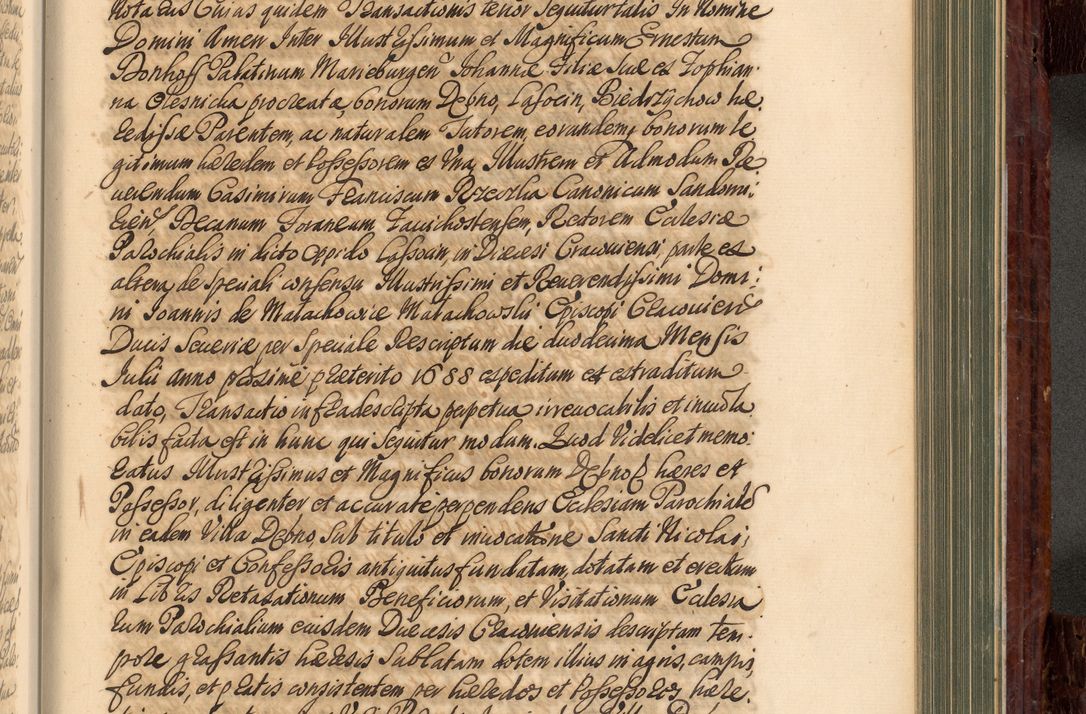 nota eus Cuius quidem Transactionis tenor sequitur talis In Nomine
Domini Amen Inter Illustrissimum et Magnificum Ernestum
Donhoff Palatinum Marieburgen Johannæ Filiæ suæ ex Sophian
na Olesnicka procreatæ, bonorum Debno, Lasocin, Biedrzychow hæ
redissæ Parentem, ac naturalem Tutorem, eorundemq bonorum le
gitimum hæredem et Possessorem ex Una, Illustrem et Admodum Re
uerendum Casimirum Franciscum Rzecolka Canonicum Sandomi:
rien, Decanum Foraneum Zauichostensem, Rectorem Ecclesiæ
Parochialis in dicto Oppido Lassocin, in Diæcesi Cracouiensi, parte ex
altera, de speciali consensu Illustrissimi et Reuerendissimi Domi:
ni Joannis de Małachowice Małachowski Episcopi Cracouien
Ducis Seueriæ per speciale Rescriptum die duodecima Mensis
Julii Anno proximè præterito 1688 expeditum et extraditum
dato, Transactio infrascripta perpetua irreuocabilis et inuiola
bilis facta est in hunc qui sequitur modum. Quod Videlicet memo:
ratus Illustrissimus et Magnificus bonorum Debno hæres et
Possessor, diligenter et accuratè perpendens Ecclesiam Parochialē
in eadem Villa Debno sub titulo et inuocatione Sancti Nicolai,
Episcopi et Confessoris antiquitus fundatam, dotatam et erectam
in Libris Retaxationum Beneficiorum, et Visitationum Ecclesia
rum Parochialium eiusdem Diæcesis Cracouiensis descriptam tem
pore grassantis hæresis sublatam dotem illius in agris, campis,
fundis, et pratis consistentem per hæredos et Possessores hære